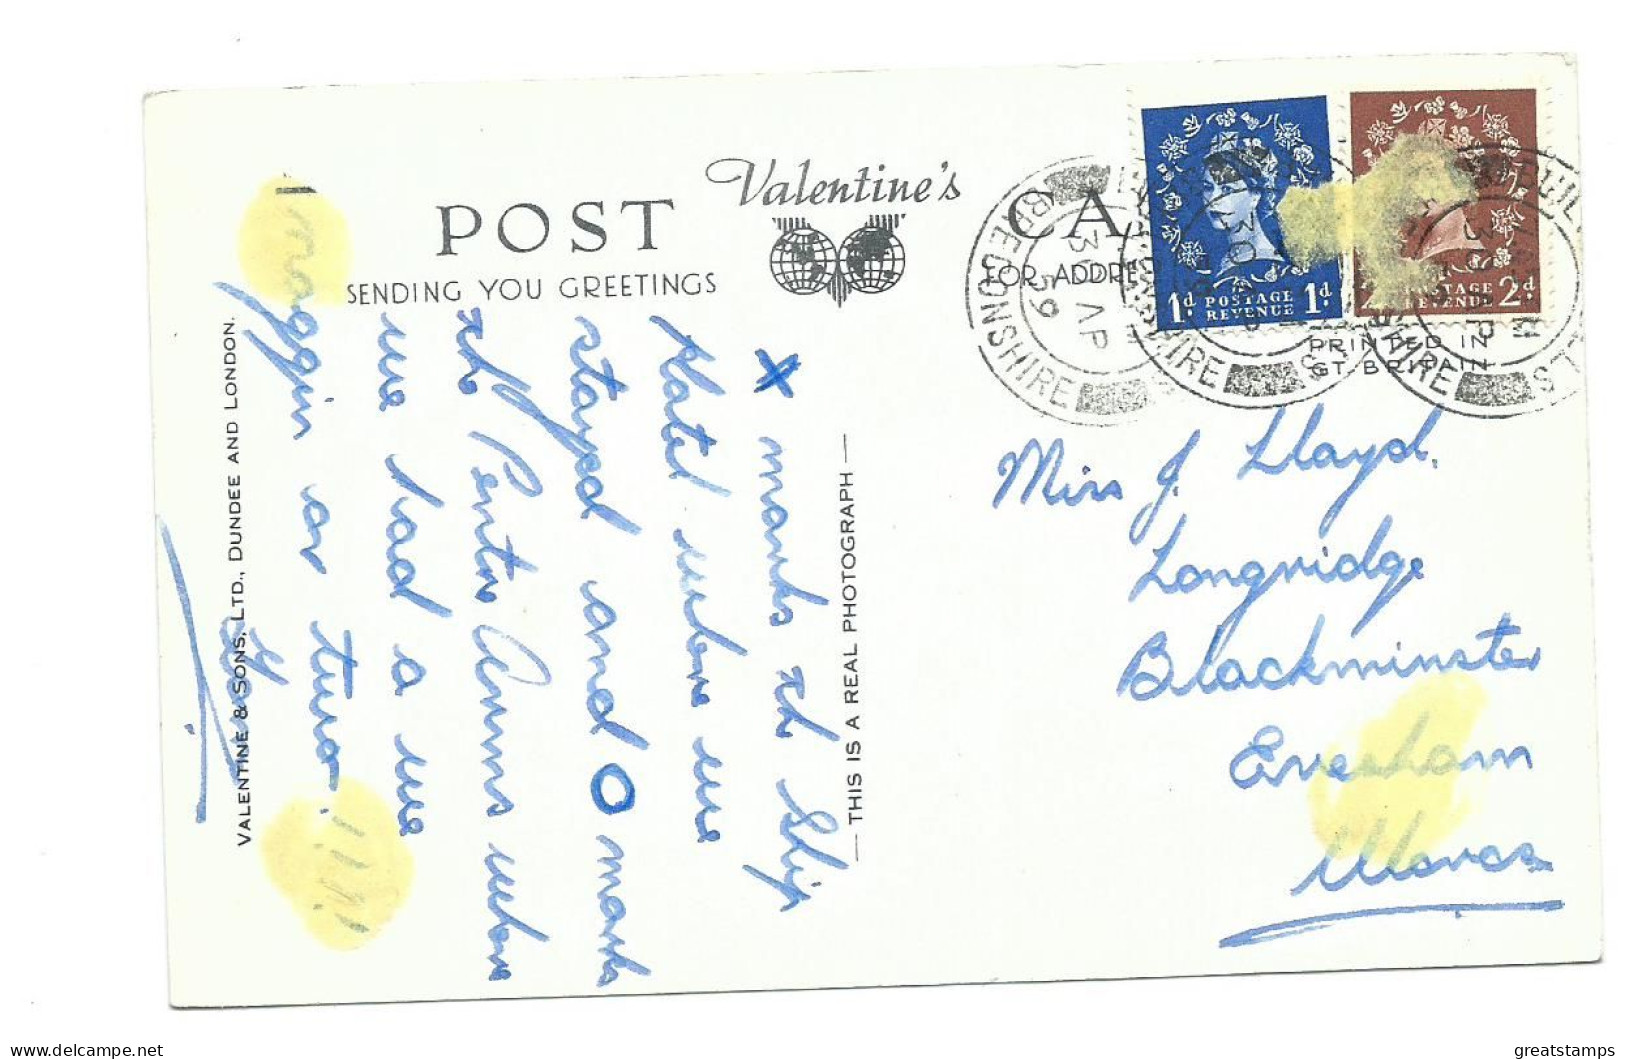 Valentine's
POST CA
SENDING YOU GREETINGS
FOR ADDRE
PRINTED IN
GT. BRITAIN
1d POSTAGE REVENUE 1d
POSTAGE REVENUE 2d
BUILTH WELLS
BRECONSHIRE
30 AP
59
VALENTINE & SONS, LTD., DUNDEE AND LONDON.
THIS IS A REAL PHOTOGRAPH
X marks the Ship
Hotel where we
stayed and O marks
the Pentre Arms where
we had a we
noggin or two. !!!!
Miss J. Lloyd.
Longridge
Blackminster
Evesham
Worcs
delcampe.net
greatstamps